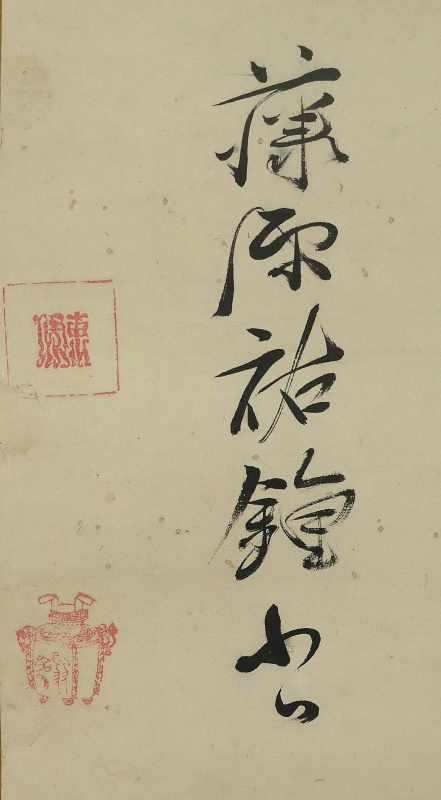 藤原祐鐘書